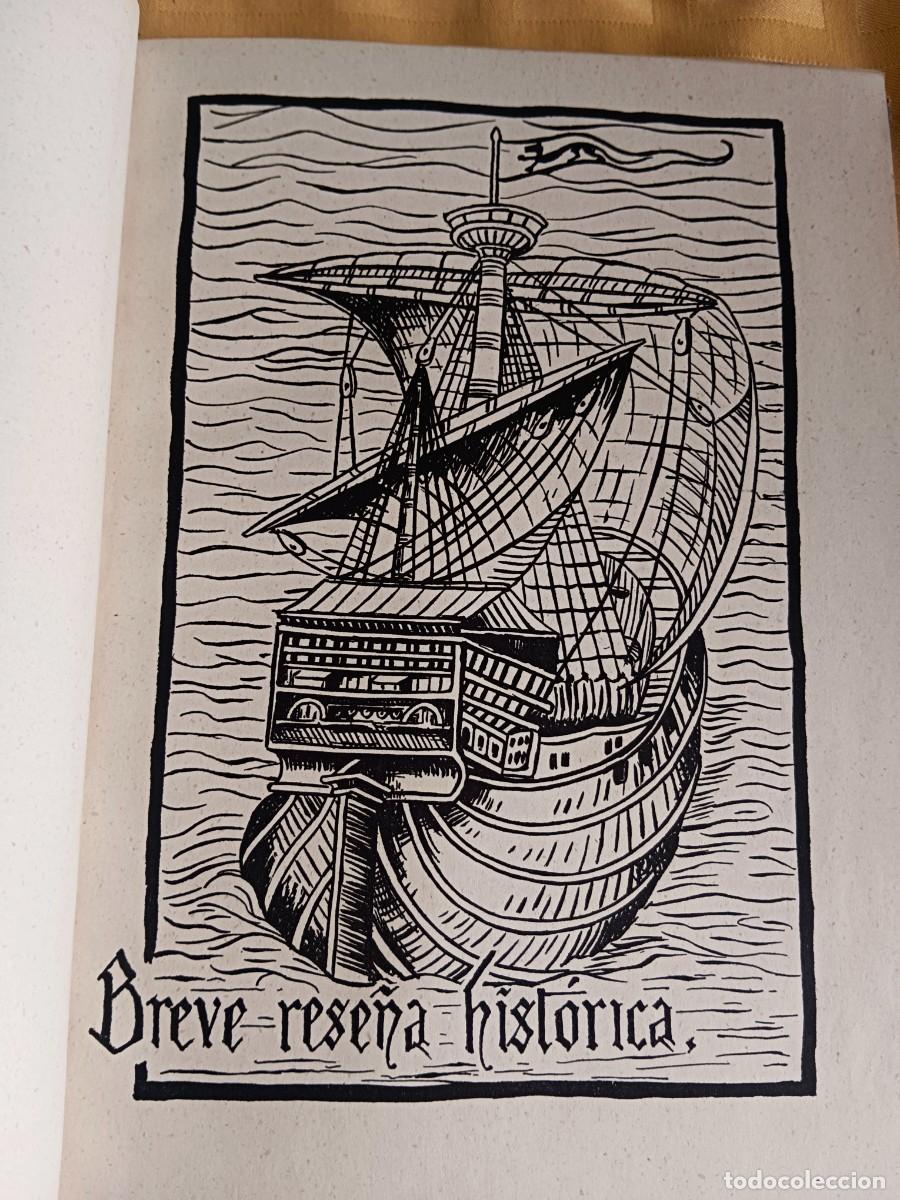 Breve reseña histórica.
todocoleccion